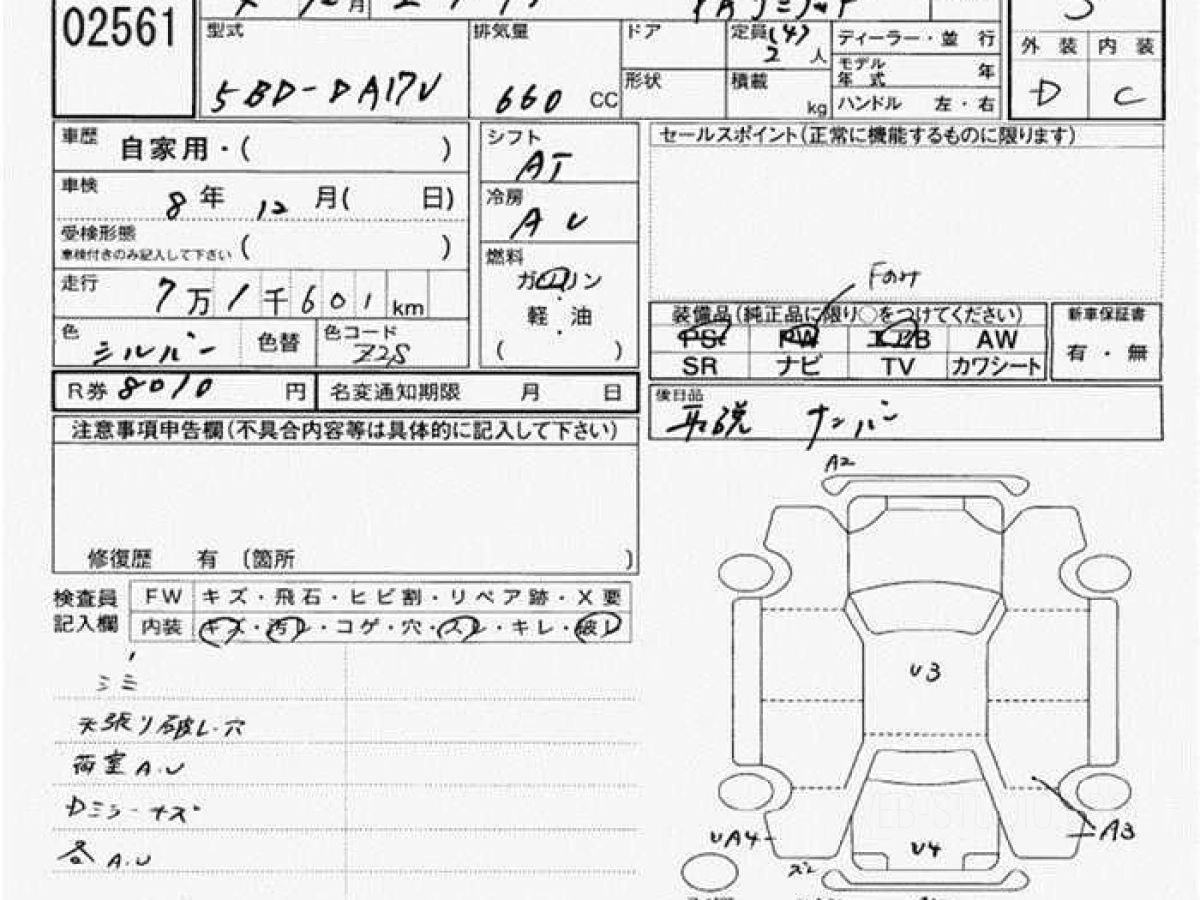 02561
月
型式 排気量 ドア 定員(4) ディーラー・並 行
2 人
5BD-DA17V 660 CC 形状 積載 kg
モデル年式 年
ハンドル 左・右
外 装 内 装
D C
車歴 自家用・( )
車検 8年 12月( 日)
受検形態
車検付きのみ記入して下さい ( )
走行 7万1千601km
色 シルバー 色替 色コード Z2S
シフト AT
冷房 AC
燃料 ガソリン
軽・油
( )
セールスポイント(正常に機能するものに限ります)
Fのみ
装備品(純正品に限り○をつけてください)
PS PW エアB AW
SR ナビ TV カワシート
新車保証書
有・無
R券 8010 円 名変通知期限 月 日
後日品
取説 ナンバー
注意事項申告欄(不具合内容等は具体的に記入して下さい)
修復歴 有 〔箇所 〕
検査員記入欄
FW キズ・飛石・ヒビ割・リペア跡・X要
内装 キズ・汚レ・コゲ・穴・スレ・キレ・破レ
シミ
天張り破レ・穴
荷室A.U
Dミラーキズ
各A.U
A2
U3
UA4
A3
U4
ズレ